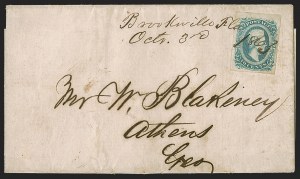 Brooksville Fla
Octr. 3d
1863
Mr W. Blakeney
Athens
Geo